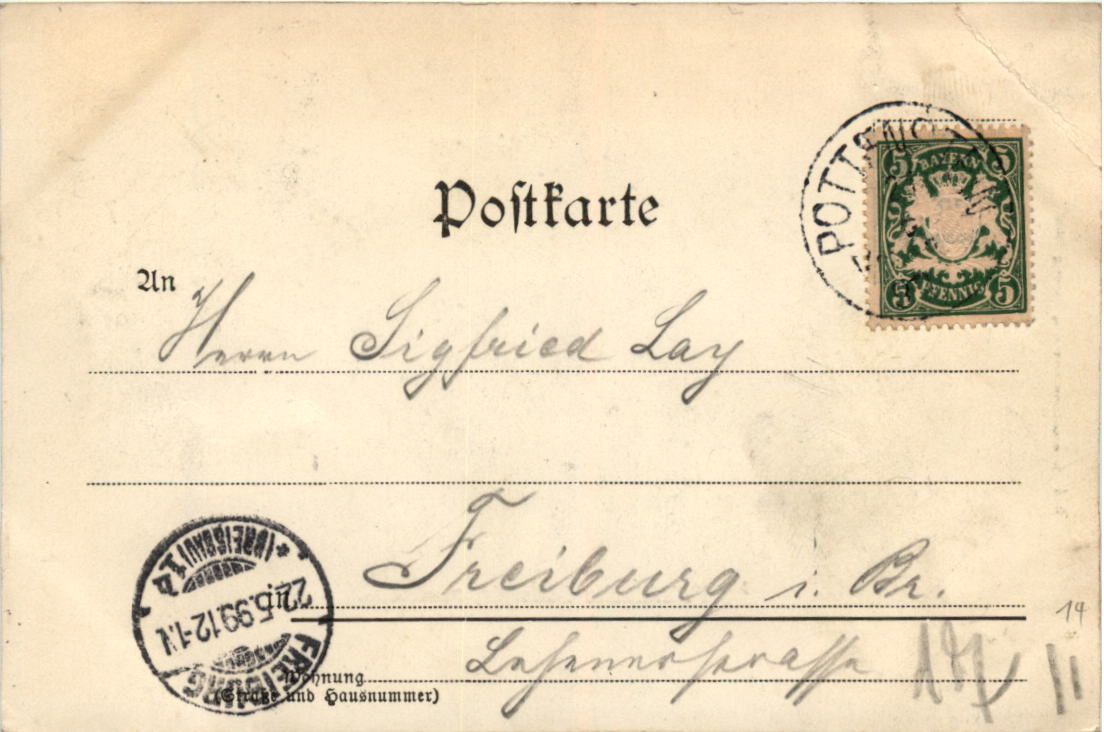 Postkarte
POTTENSTEIN
5 BAYERN 5
5 PFENNIG 5
An
Herrn Sigfried Lay
Freiburg i. Br.
in
FREIBURG
* (BREISGAU) 1 d
22.5.99.12-1.N
Wohnung
(Straße und Hausnummer)
14